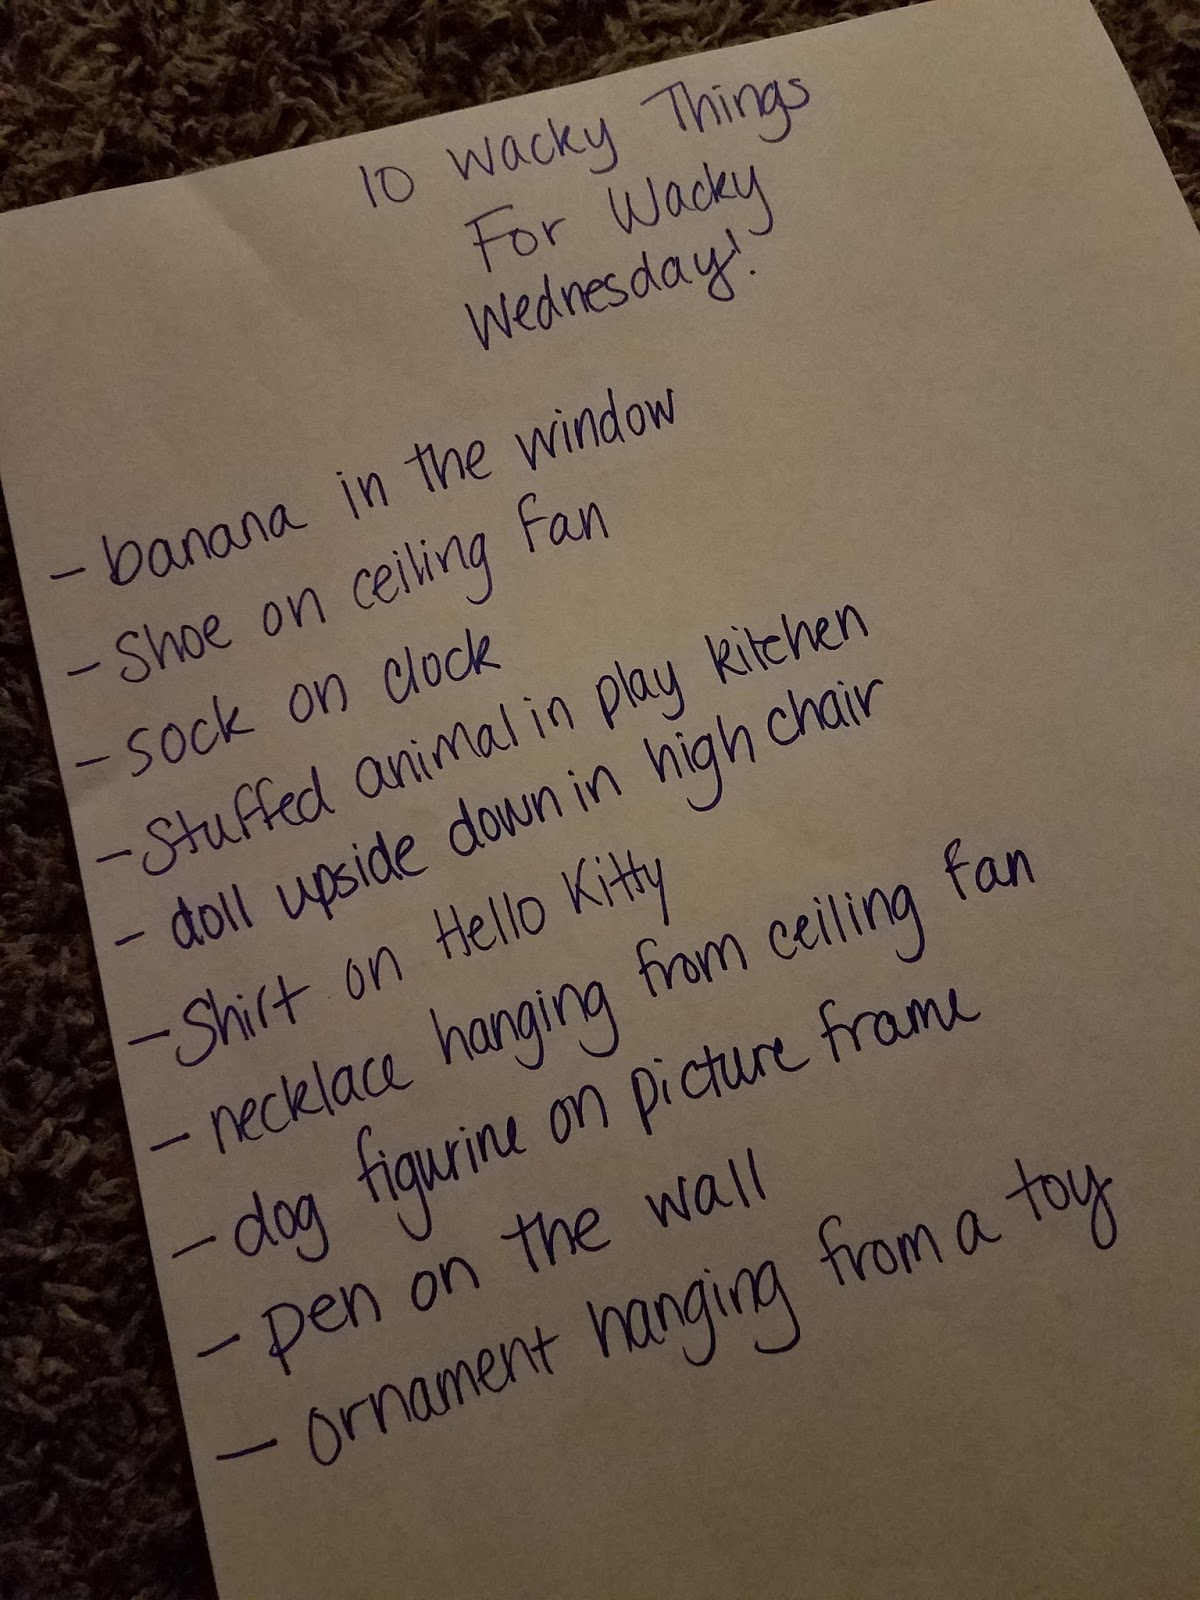 10 Wacky Things
For Wacky
Wednesday!
- banana in the window
- Shoe on ceiling fan
- sock on clock
- Stuffed animal in play kitchen
- doll upside down in high chair
- Shirt on Hello Kitty
- necklace hanging from ceiling fan
- dog figurine on picture frame
- pen on the wall
- ornament hanging from a toy